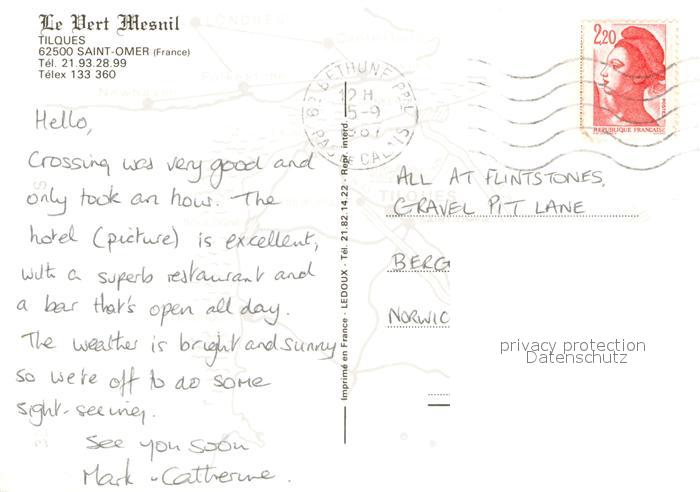 Le Vert Mesnil
TILQUES
62500 SAINT-OMER (France)
Tél. 21.93.28.99
Télex 133 360
Hello,
Crossing was very good and
only took an hour. The
hotel (picture) is excellent,
with a superb restaurant and
a bar that's open all day.
The weather is bright and sunny
so we're off to do some
sight-seeing.
See you soon
Mark Catherine.
Imprimé en France - LEDOUX - Tél. 21.82.14.22 - Repr. interd.
62 BETHUNE PPL
12 H
5-9
PAS DE CALAIS
2,20
POSTES
REPUBLIQUE FRANCAISE
ALL AT FLINTSTONES,
GRAVEL PIT LANE
BERG
NORWIC
privacy protection
Datenschutz
LONDRES
Folkestone
Newhaven
TILQUES